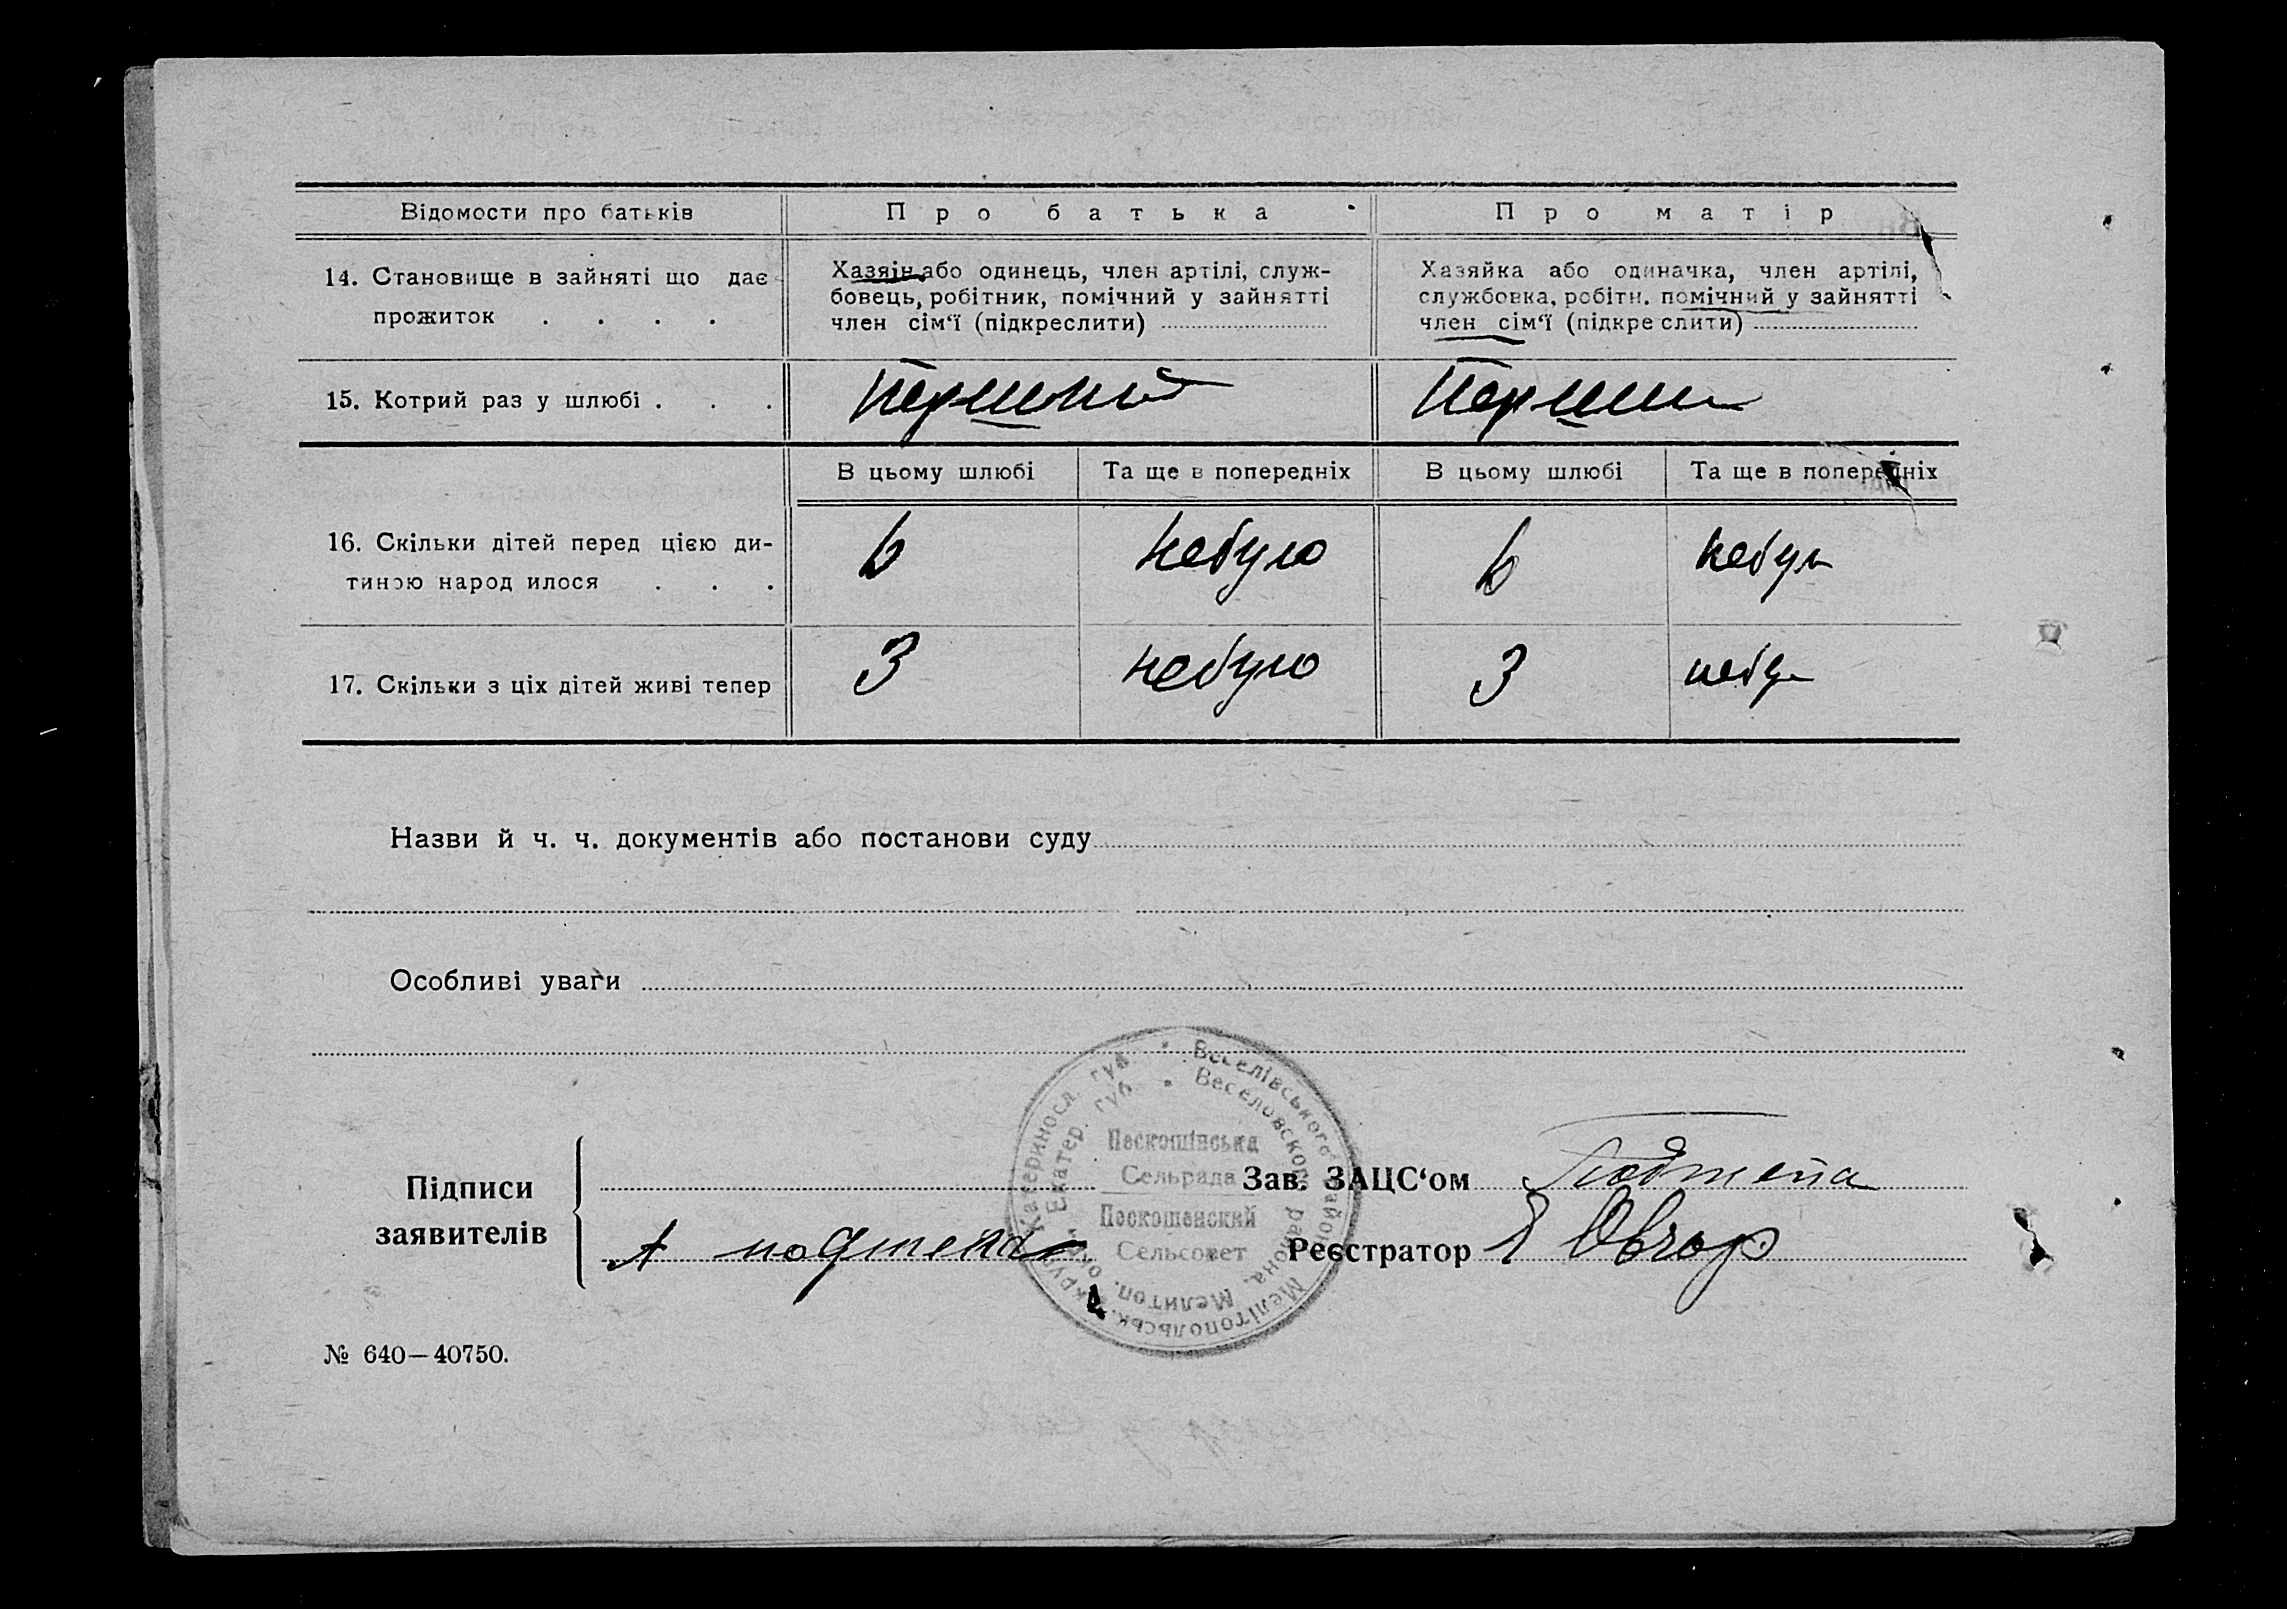 Відомости про батьків
Про батька
Про матір
14. Становище в зайняті що дає
прожиток . . . .
Хазяін або одинець, член артілі, служ-
бовець, робітник, помічний у зайнятті
член сім‘ї (підкреслити)
Хазяйка або одиначка, член артілі,
службовка, робітн. помічний у зайнятті
член сім‘ї (підкреслити)
15. Котрий раз у шлюбі . . .
В цьому шлюбі
Та ще в попередніх
В цьому шлюбі
Та ще в попередніх
16. Скільки дітей перед цією ди-
тиною народилося . . .
6
небуло
6
небул
17. Скільки з ціх дітей живі тепер
3
небуло
3
небул
Назви й ч. ч. документів або постанови суду
Особливі уваги
Підписи
заявителів
Зав. ЗАЦС‘ом
Реєстратор
Катериносл. губ. * Веселівського району Мелітопольськ. округи
Екатер. губ. * Веселовского района, Мелитоп. окр.
Сельрада
Сельсовет
№ 640—40750.